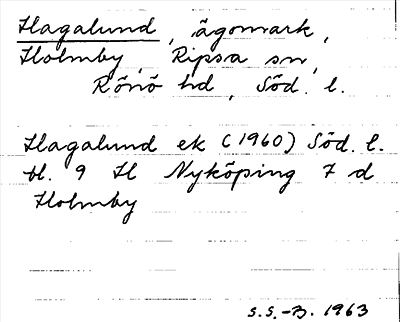 Hagalund, ägomark,
Holmby, Ripsa sn,
Rönö hd, Söd. l.
Hagalund ek (1960) Söd. l.
bl. 9 H Nyköping 7 d
Holmby
S.S.-B. 1963